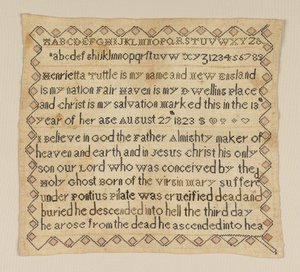 ABCDEFGHIJKLMNOPQRSTUVWXYZ&
abcdefghijklmnopqrstuvwxyz123456789
Henrietta Tuttle is my name and New England
is my nation Fair Haven is my Dwelling place
and christ is my salvation marked this in the 12th
year of her age August 27th 1823
I believe in God the Father Almighty maker of
heaven and earth and in Jesus christ his only
son our Lord who was conceived by the
Holy Ghost Born of the virgin mary suffere
under Pontius Pilate was crucified dead and
buried he descended into hell the third day
he arose from the dead he ascended into hea